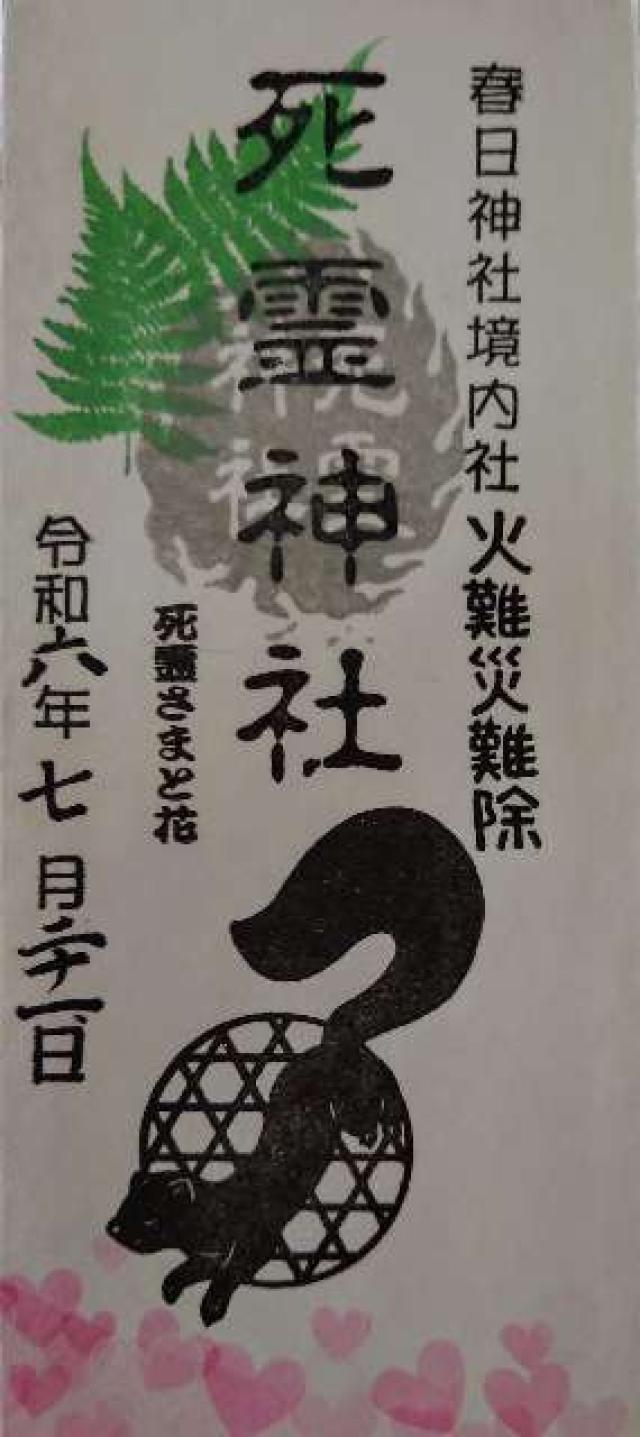 春日神社境内社火難災難除
死霊神社
死霊さまと花
令和六年七月二十一日